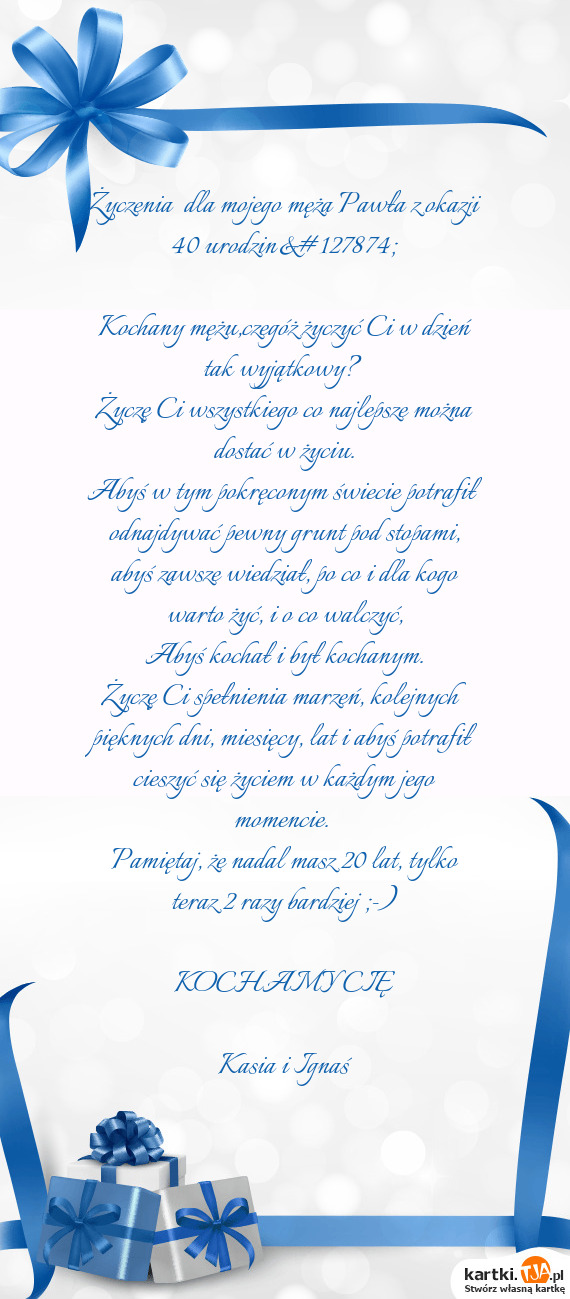 Życzenia dla mojego męża Pawła z okazji
40 urodzin &#127874;
Kochany mężu,czegóż życzyć Ci w dzień
tak wyjątkowy?
Życzę Ci wszystkiego co najlepsze można
dostać w życiu.
Abyś w tym pokręconym świecie potrafił
odnajdywać pewny grunt pod stopami,
abyś zawsze wiedział, po co i dla kogo
warto żyć, i o co walczyć,
Abyś kochał i był kochanym.
Życzę Ci spełnienia marzeń, kolejnych
pięknych dni, miesięcy, lat i abyś potrafił
cieszyć się życiem w każdym jego
momencie.
Pamiętaj, że nadal masz 20 lat, tylko
teraz 2 razy bardziej ;-)
KOCHAMY CIĘ
Kasia i Ignaś
kartki.TJA.pl
Stwórz własną kartkę